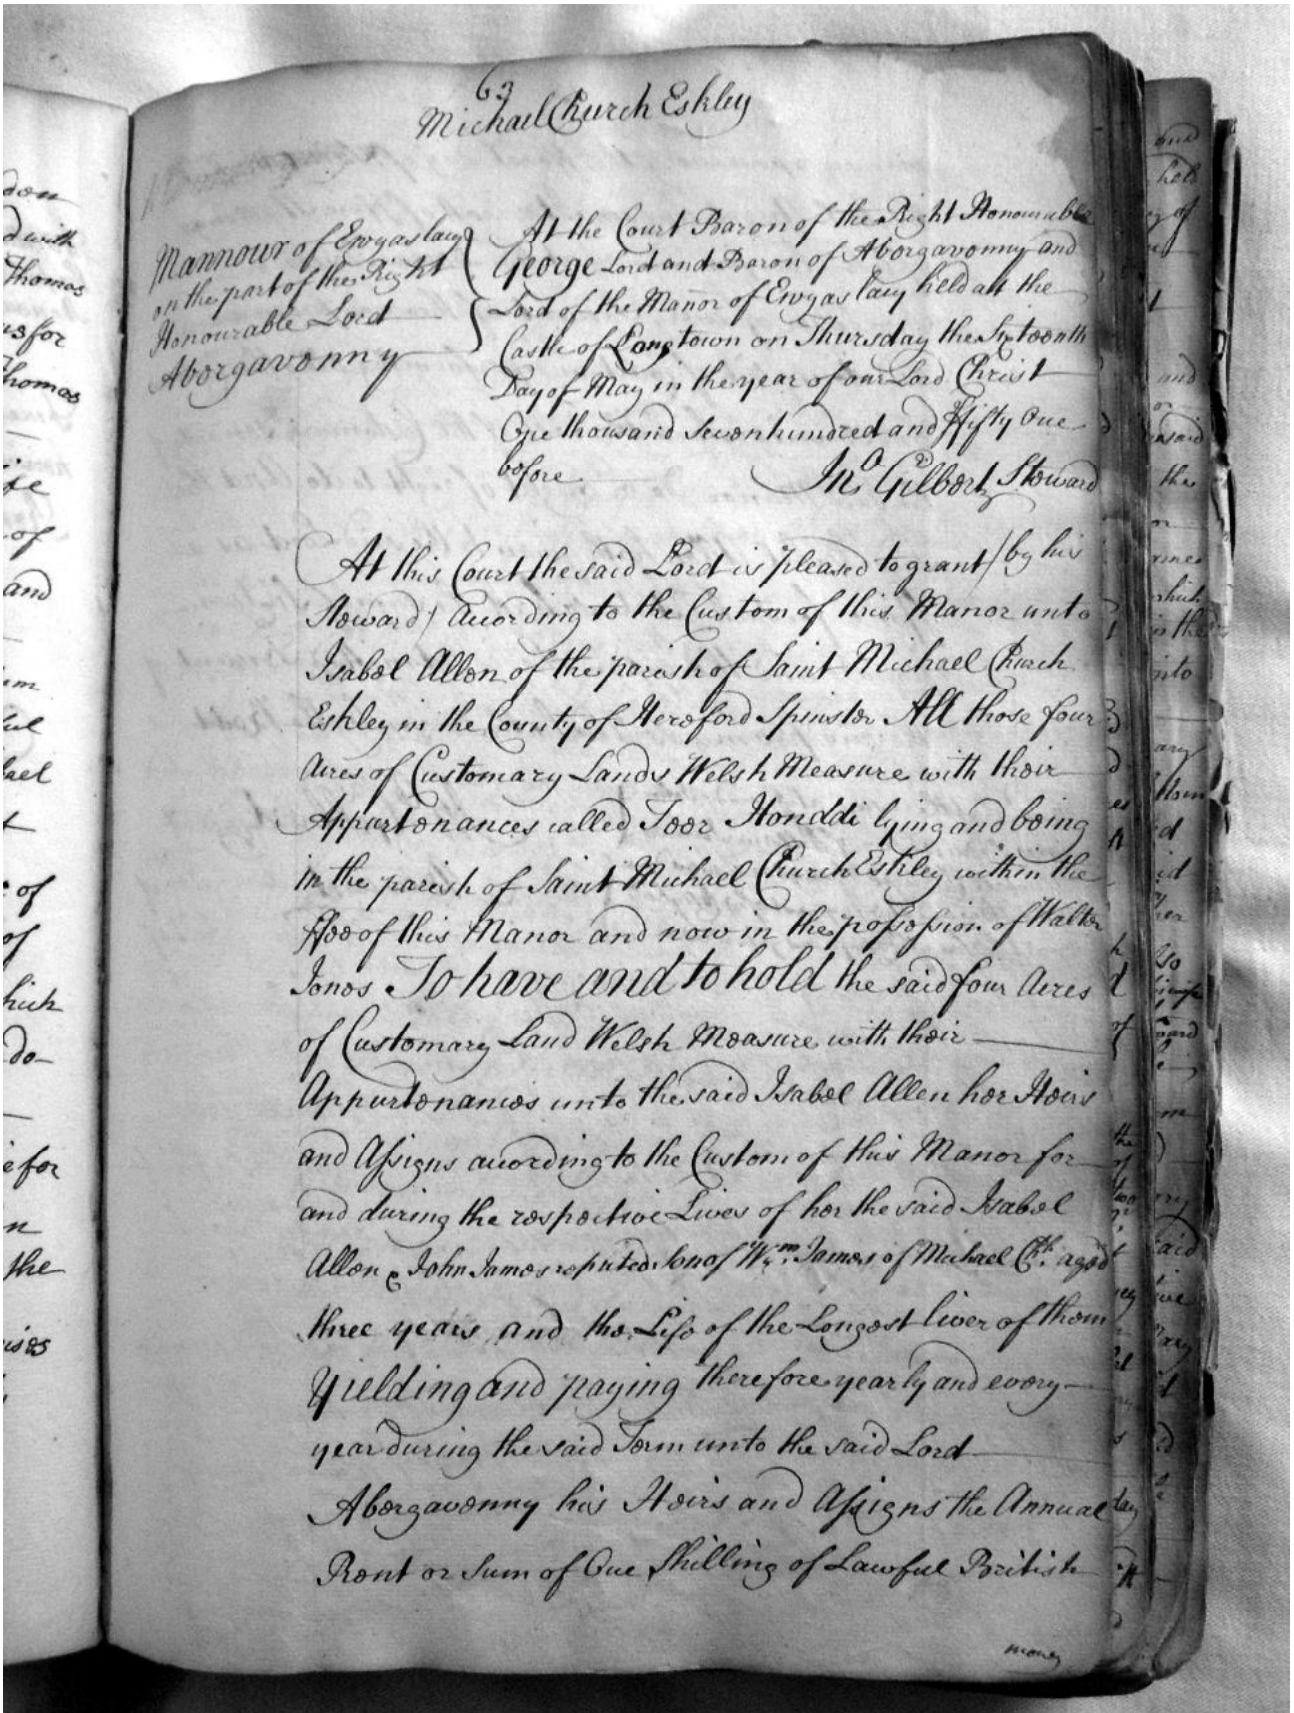 63
Michael Church Eskley
Mannour of Ewyas lacy
on the part of the Right
Honourable Lord
Abergavenny
At the Court Baron of the Right Honourable
George Lord and Baron of Abergavenny and
Lord of the Manor of Ewyas lacy held att the
Castle of Longtown on Thursday the Sixteenth
Day of May in the year of our Lord Christ
One thousand seven hundred and ffifty One
before
Jno Gilbert Steward
At this Court the said Lord is pleased to grant (by his
Steward) According to the Custom of this Manor unto
Isabel Allen of the parish of Saint Michael Church
Eskley in the County of Hereford Spinster All those four
Acres of Customary Lands Welsh Measure with their
Appurtenances called Teer Honddi lying and being
in the parish of Saint Michael Church Eskley within the
ffee of this Manor and now in the possession of Walter
Jones To have and to hold the said four Acres
of Customary Land Welsh Measure with their
Appurtenances unto the said Isabel Allen her Heirs
and Assigns according to the Custom of this Manor for
and during the respective Lives of her the said Isabel
Allen & John James reputed Son of Wm. James of Michael Chh. aged
three years and the Life of the Longest liver of them
Yielding and paying therefore yearly and every
year during the said Term unto the said Lord
Abergavenny his Heirs and Assigns the Annual
Rent or Sum of One Shilling of Lawful British
money